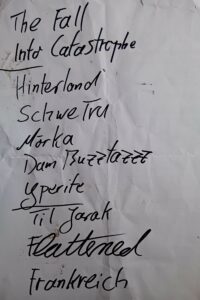 The Fall
Into Catastrophe
Hinterland
Schwe Tru
Morka
Dam Buzztazzz
Yperite
Til Jarak
Flattened
Frankreich